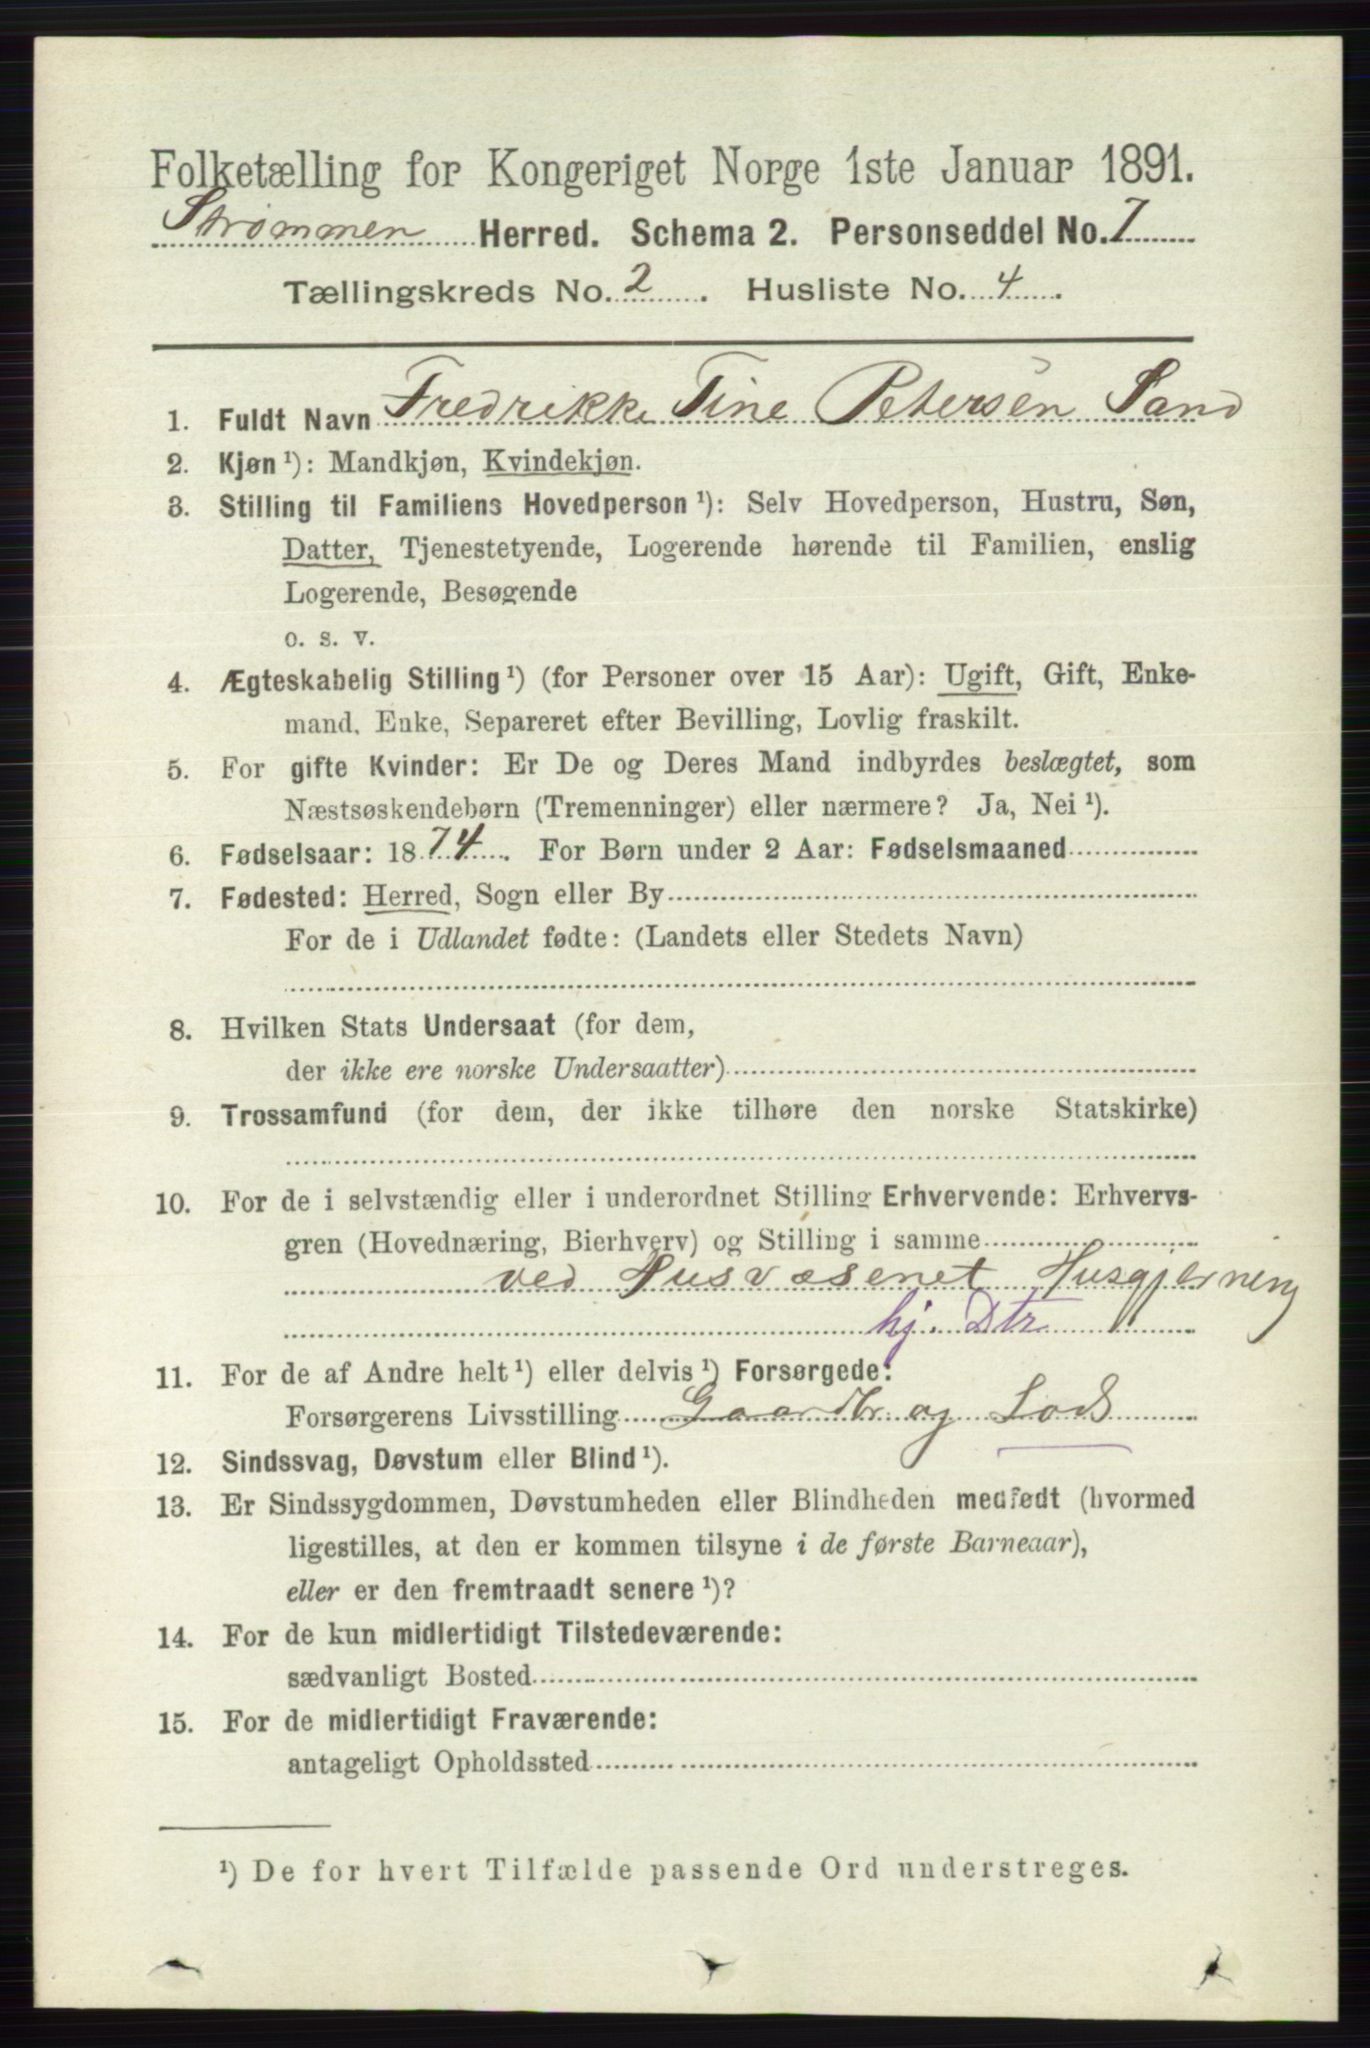 Folketælling for Kongeriget Norge 1ste Januar 1891.
Strømmen Herred. Schema 2. Personseddel No. 7
Tællingskreds No. 2. Husliste No. 4.
1. Fuldt Navn Fredrikke Tine Petersen Sand
2. Kjøn¹): Mandkjøn, Kvindekjøn.
3. Stilling til Familiens Hovedperson¹): Selv Hovedperson, Hustru, Søn,
Datter, Tjenestetyende, Logerende hørende til Familien, enslig
Logerende, Besøgende
o. s. v.
4. Ægteskabelig Stilling¹) (for Personer over 15 Aar): Ugift, Gift, Enke-
mand, Enke, Separeret efter Bevilling, Lovlig fraskilt.
5. For gifte Kvinder: Er De og Deres Mand indbyrdes beslægtet, som
Næstsøskendebørn (Tremenninger) eller nærmere? Ja, Nei¹).
6. Fødselsaar: 1874. For Børn under 2 Aar: Fødselsmaaned
7. Fødested: Herred, Sogn eller By
For de i Udlandet fødte: (Landets eller Stedets Navn)
8. Hvilken Stats Undersaat (for dem,
der ikke ere norske Undersaatter)
9. Trossamfund (for dem, der ikke tilhøre den norske Statskirke)
10. For de i selvstændig eller i underordnet Stilling Erhvervende: Erhvervs-
gren (Hovednæring, Bierhverv) og Stilling i samme
ved Husvæsenet Husgjerning
hj. Dtr
11. For de af Andre helt¹) eller delvis¹) Forsørgede:
Forsørgerens Livsstilling Gaardbr og Lods
12. Sindssvag, Døvstum eller Blind¹).
13. Er Sindssygdommen, Døvstumheden eller Blindheden medfødt (hvormed
ligestilles, at den er kommen tilsyne i de første Barneaar),
eller er den fremtraadt senere¹)?
14. For de kun midlertidigt Tilstedeværende:
sædvanligt Bosted
15. For de midlertidigt Fraværende:
antageligt Opholdssted
¹) De for hvert Tilfælde passende Ord understreges.